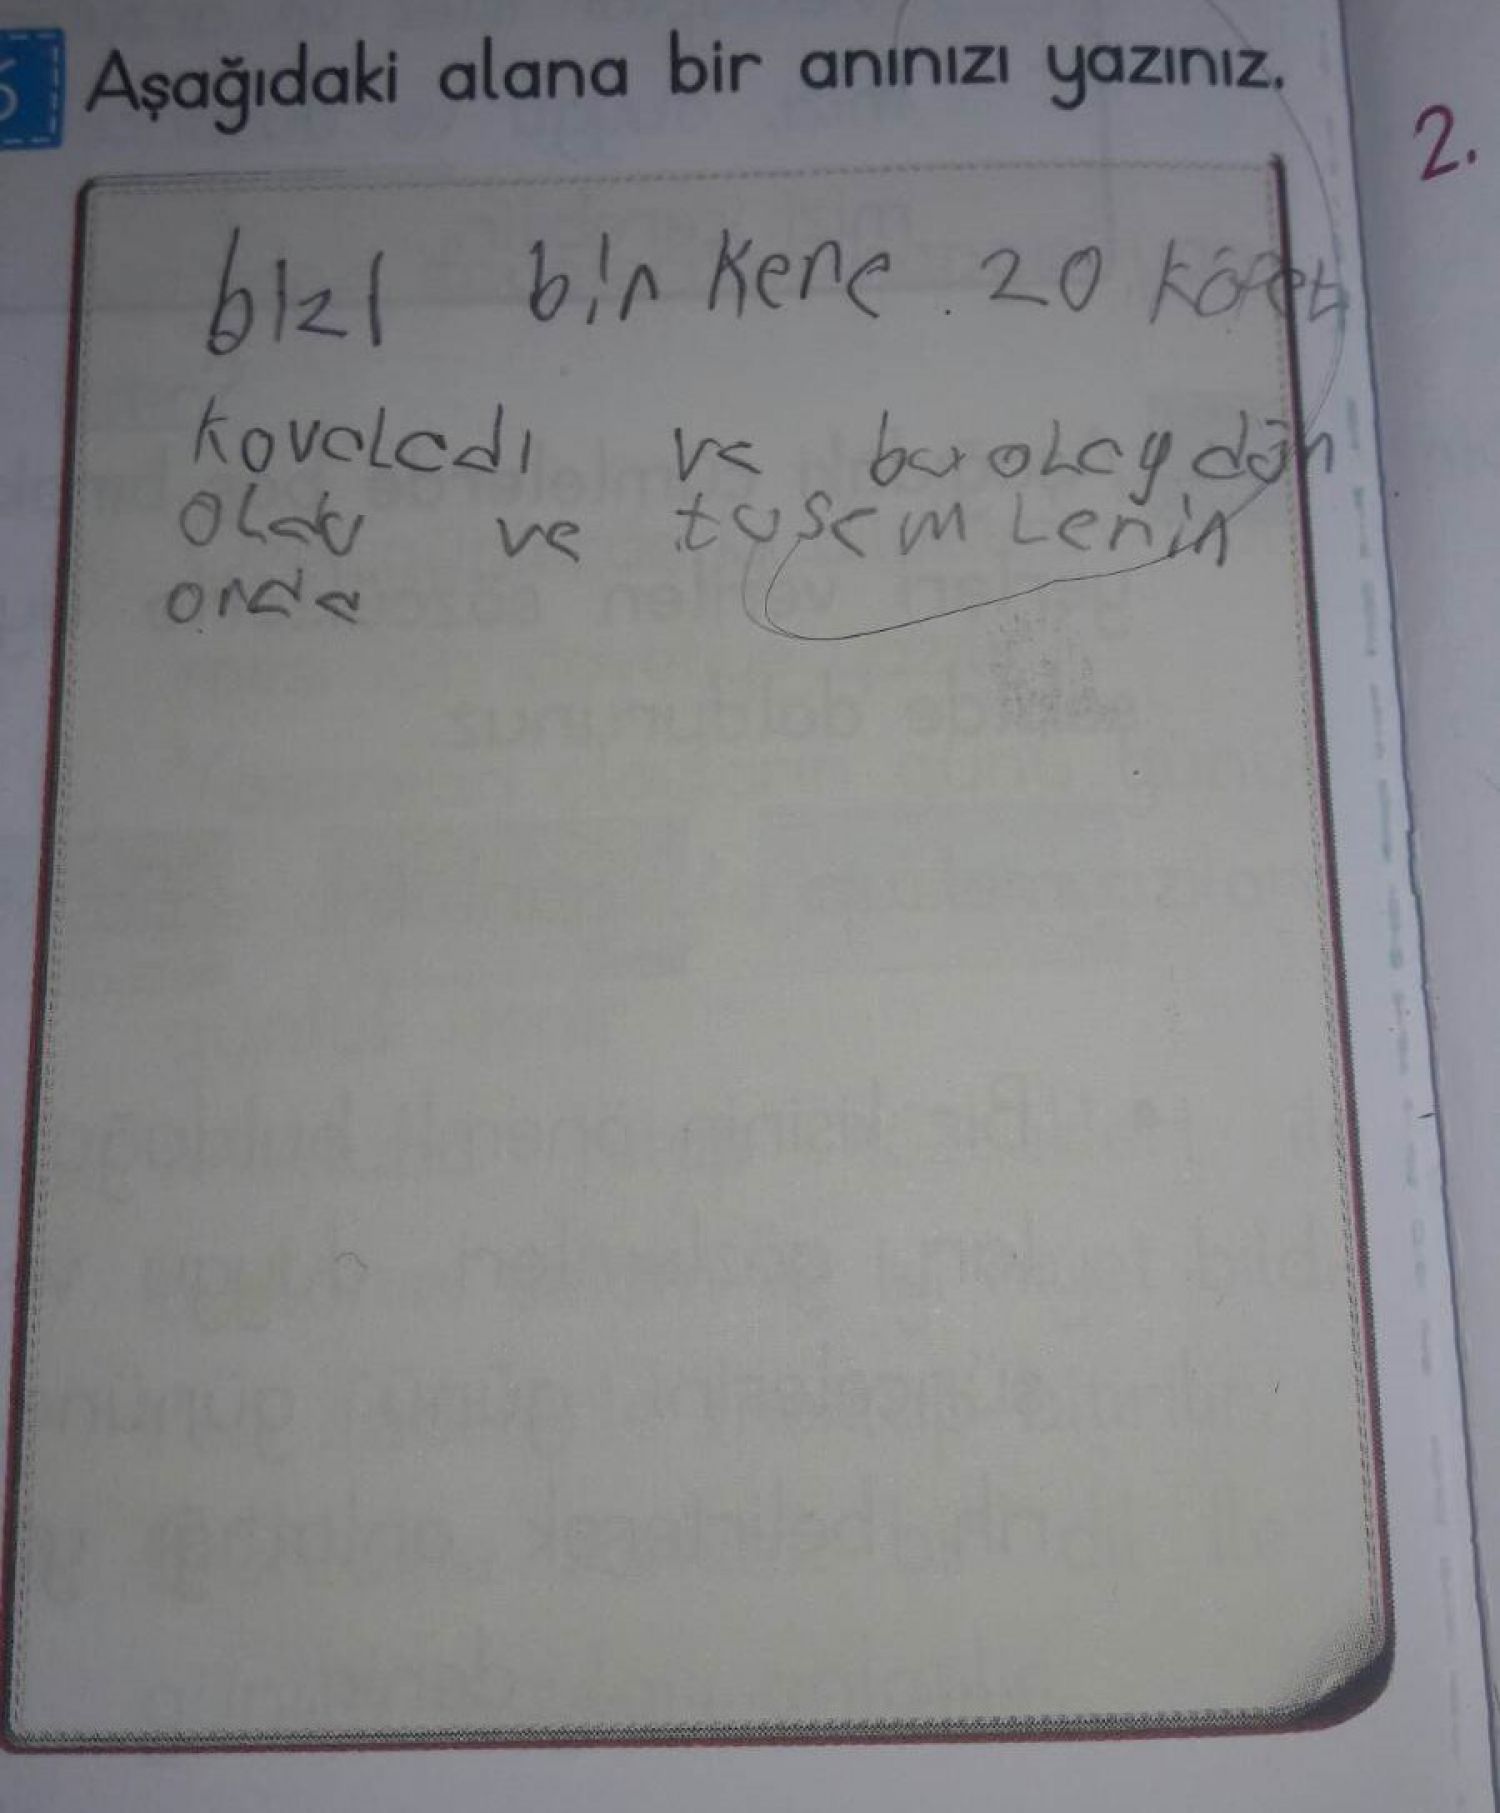 Aşağıdaki alana bir anınızı yazınız.
2.
bizi bin kere . 20 köpek
kovaladı ve bu olay dün
oldu ve
onda